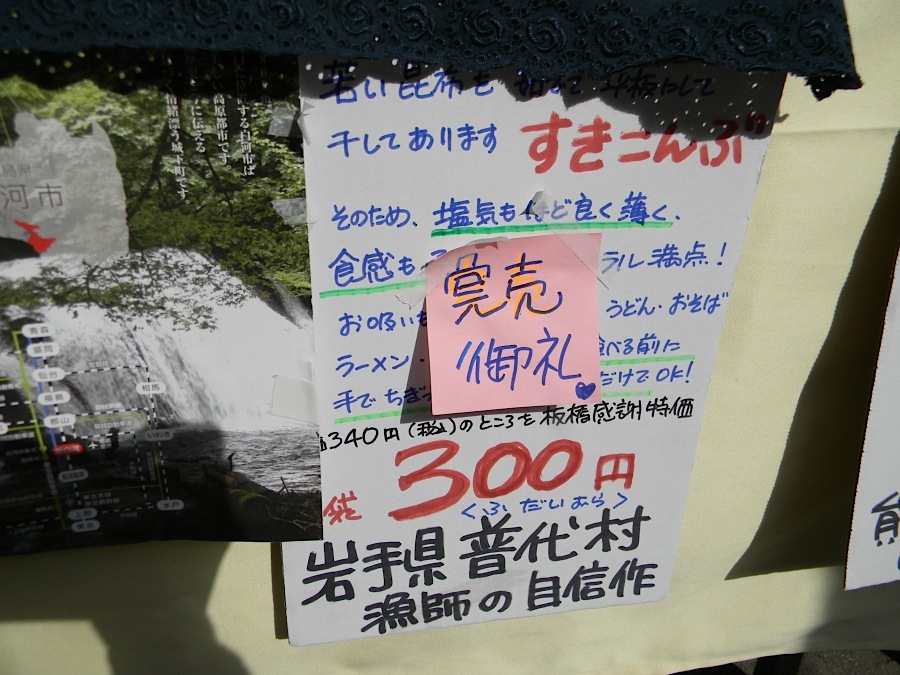 若い昆布を
平板にして
干してあります
すきこんぶ
そのため、塩気もほど良く薄く、
食感も
ラル満点!
お吸い
うどん・おそば
ラーメン・
食べる前に
手でちぎ
だけでOK!
完売
御礼
340円(税込)のところを板橋感謝特価
袋
300円
<ふだいむら>
岩手県普代村
漁師の自信作
河市
する白河市は
高原都市です
に伝える
情緒漂う城下町です。
青森
盛岡
仙台
福島
郡山
相馬
いわき
水戸
上野
東京
能